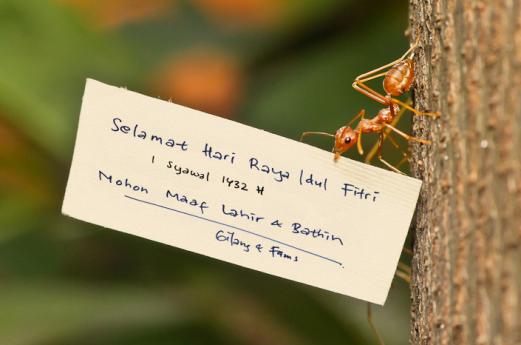 Selamat Hari Raya Idul Fitri
1 Syawal 1432 H
Mohon Maaf Lahir & Bathin
Gilang & Fams